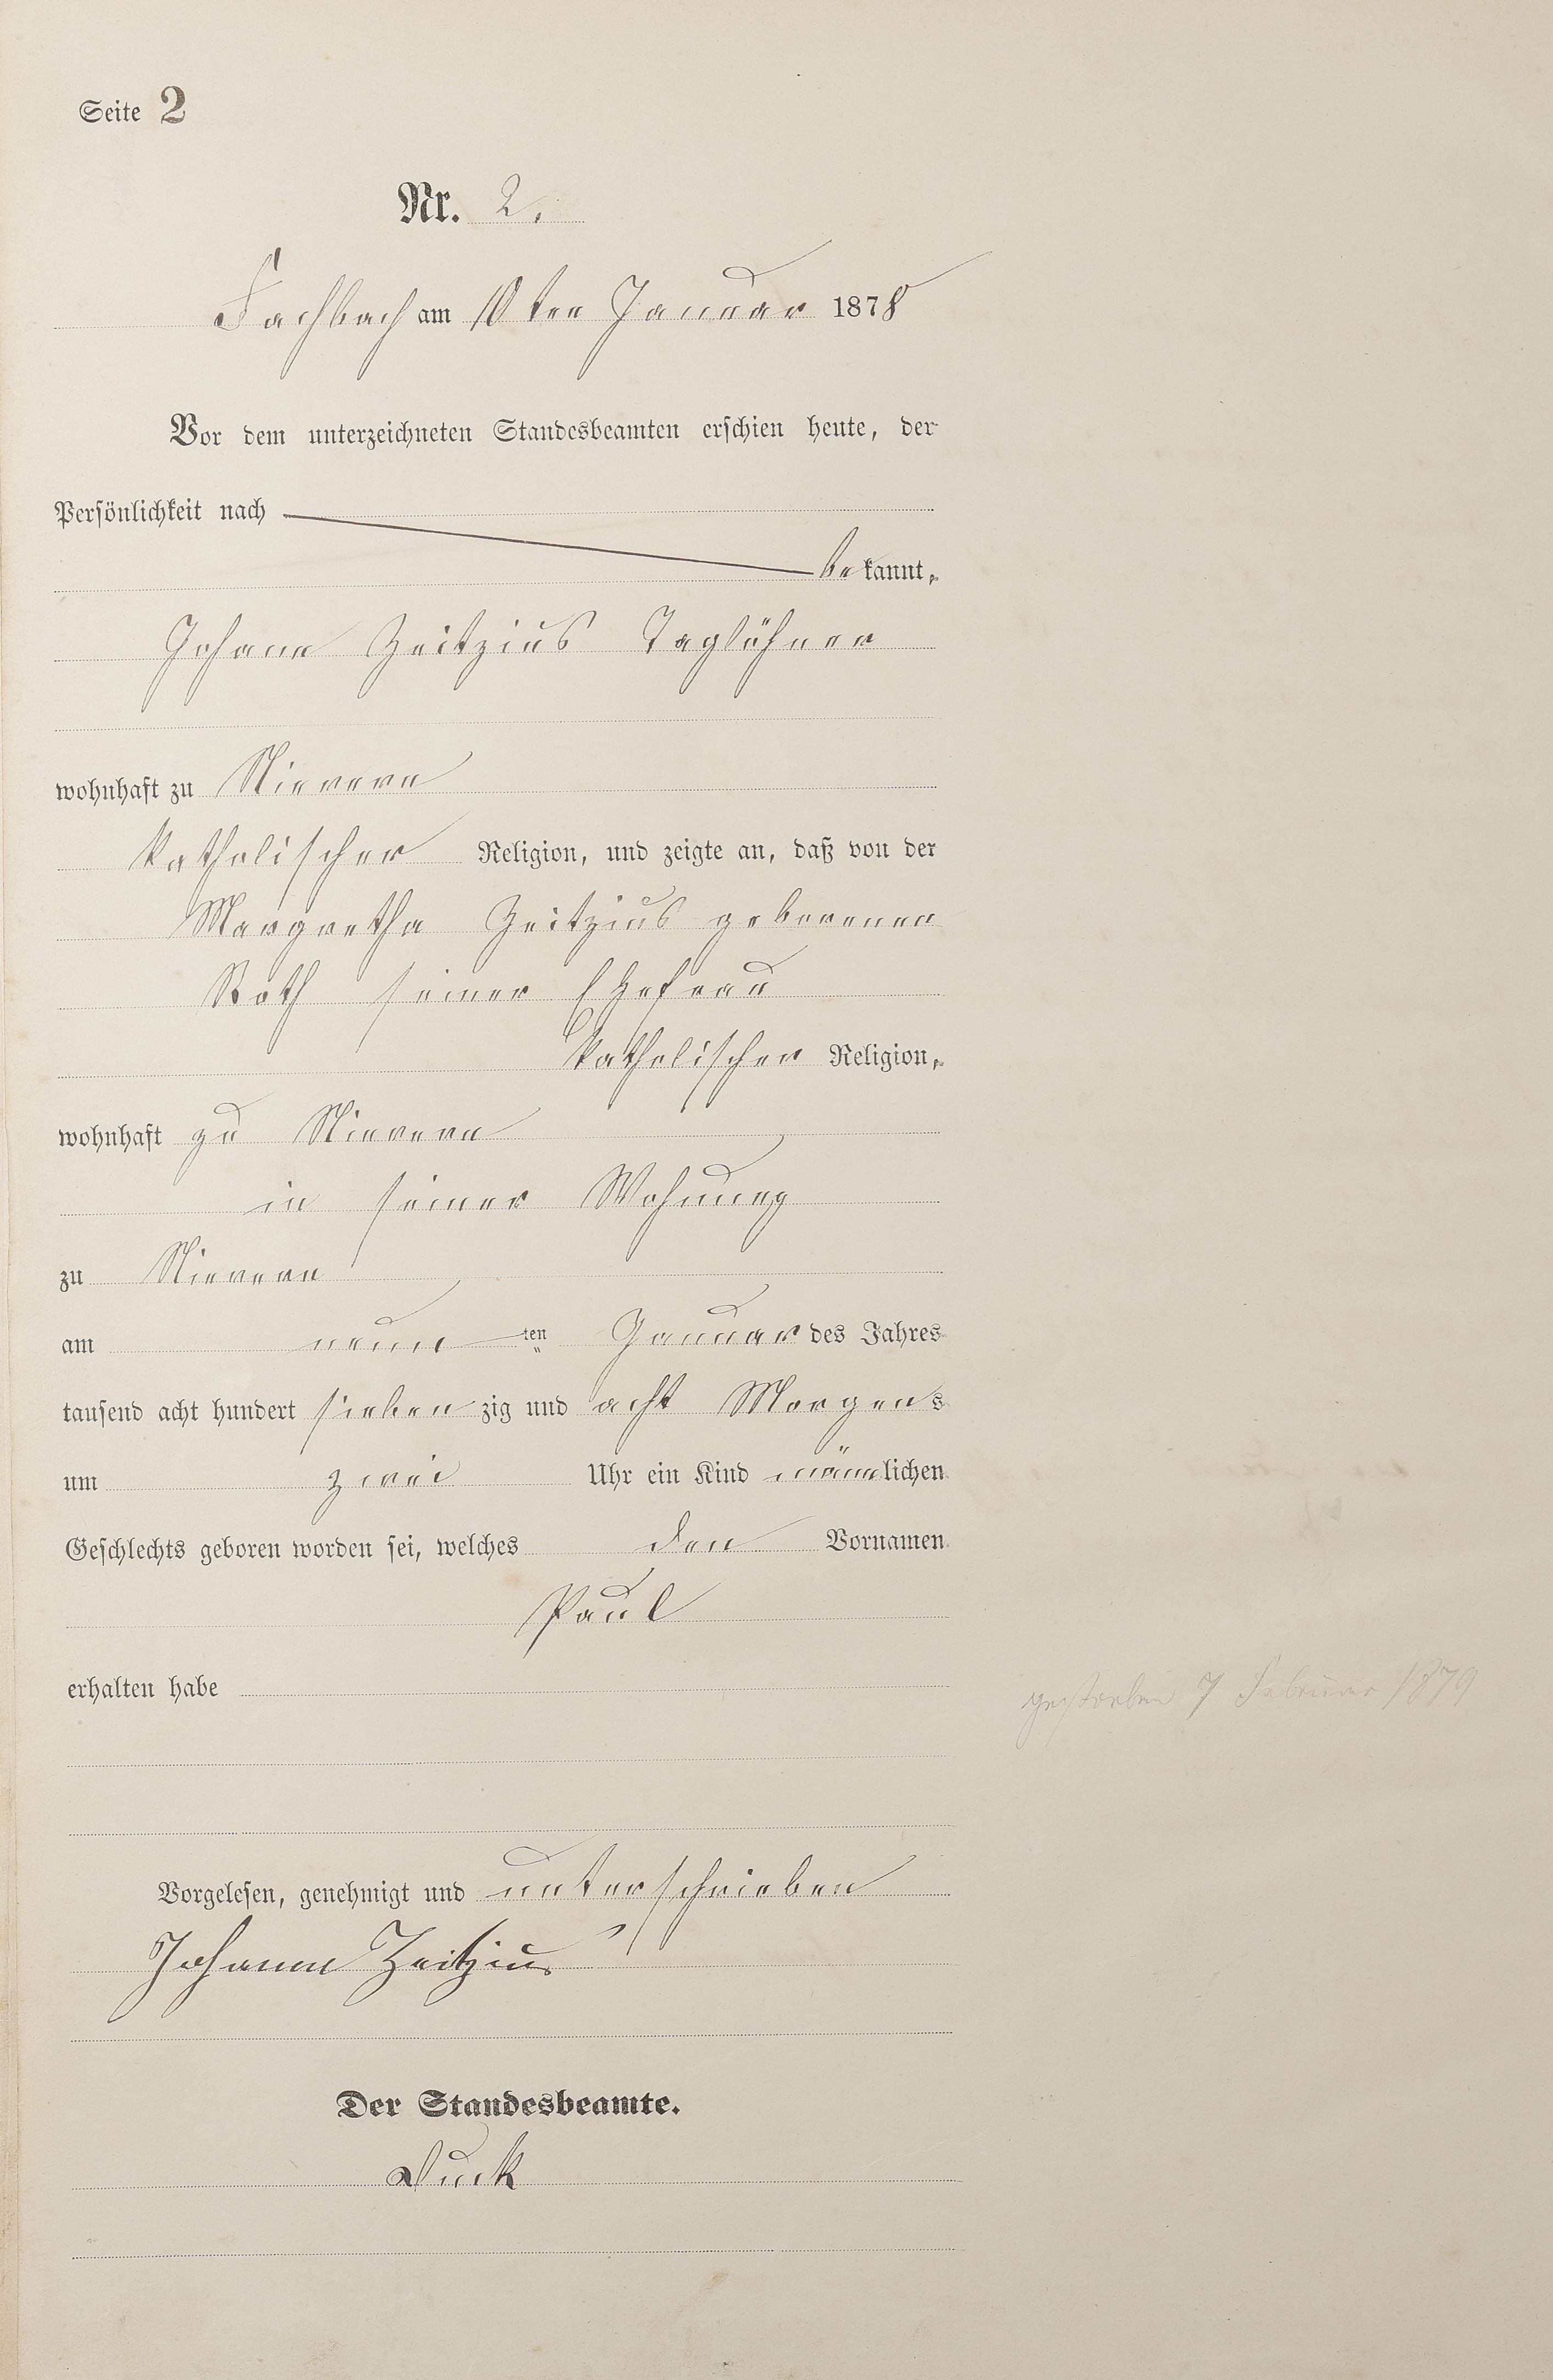 Seite 2
Nr. 2.
Fachbach am 10ten Januar 1878
Vor dem unterzeichneten Standesbeamten erschien heute, der
Persönlichkeit nach
bekannt,
Johann Zeitzius Taglöhner
wohnhaft zu Nievern
katholischer Religion, und zeigte an, daß von der
Margretha Zeitzius geborenen
Roth seiner Ehefrau
katholischer Religion,
wohnhaft zu Nievern
in seiner Wohnung
zu Nievern
am neun ten Januar des Jahres
tausend acht hundert sieben zig und acht Morgens
um zwei Uhr ein Kind männlichen
Geschlechts geboren worden sei, welches den Vornamen
Paul
erhalten habe
gestorben 7 Februar 1879
Vorgelesen, genehmigt und unterschrieben
Johann Zeitzius
Der Standesbeamte.